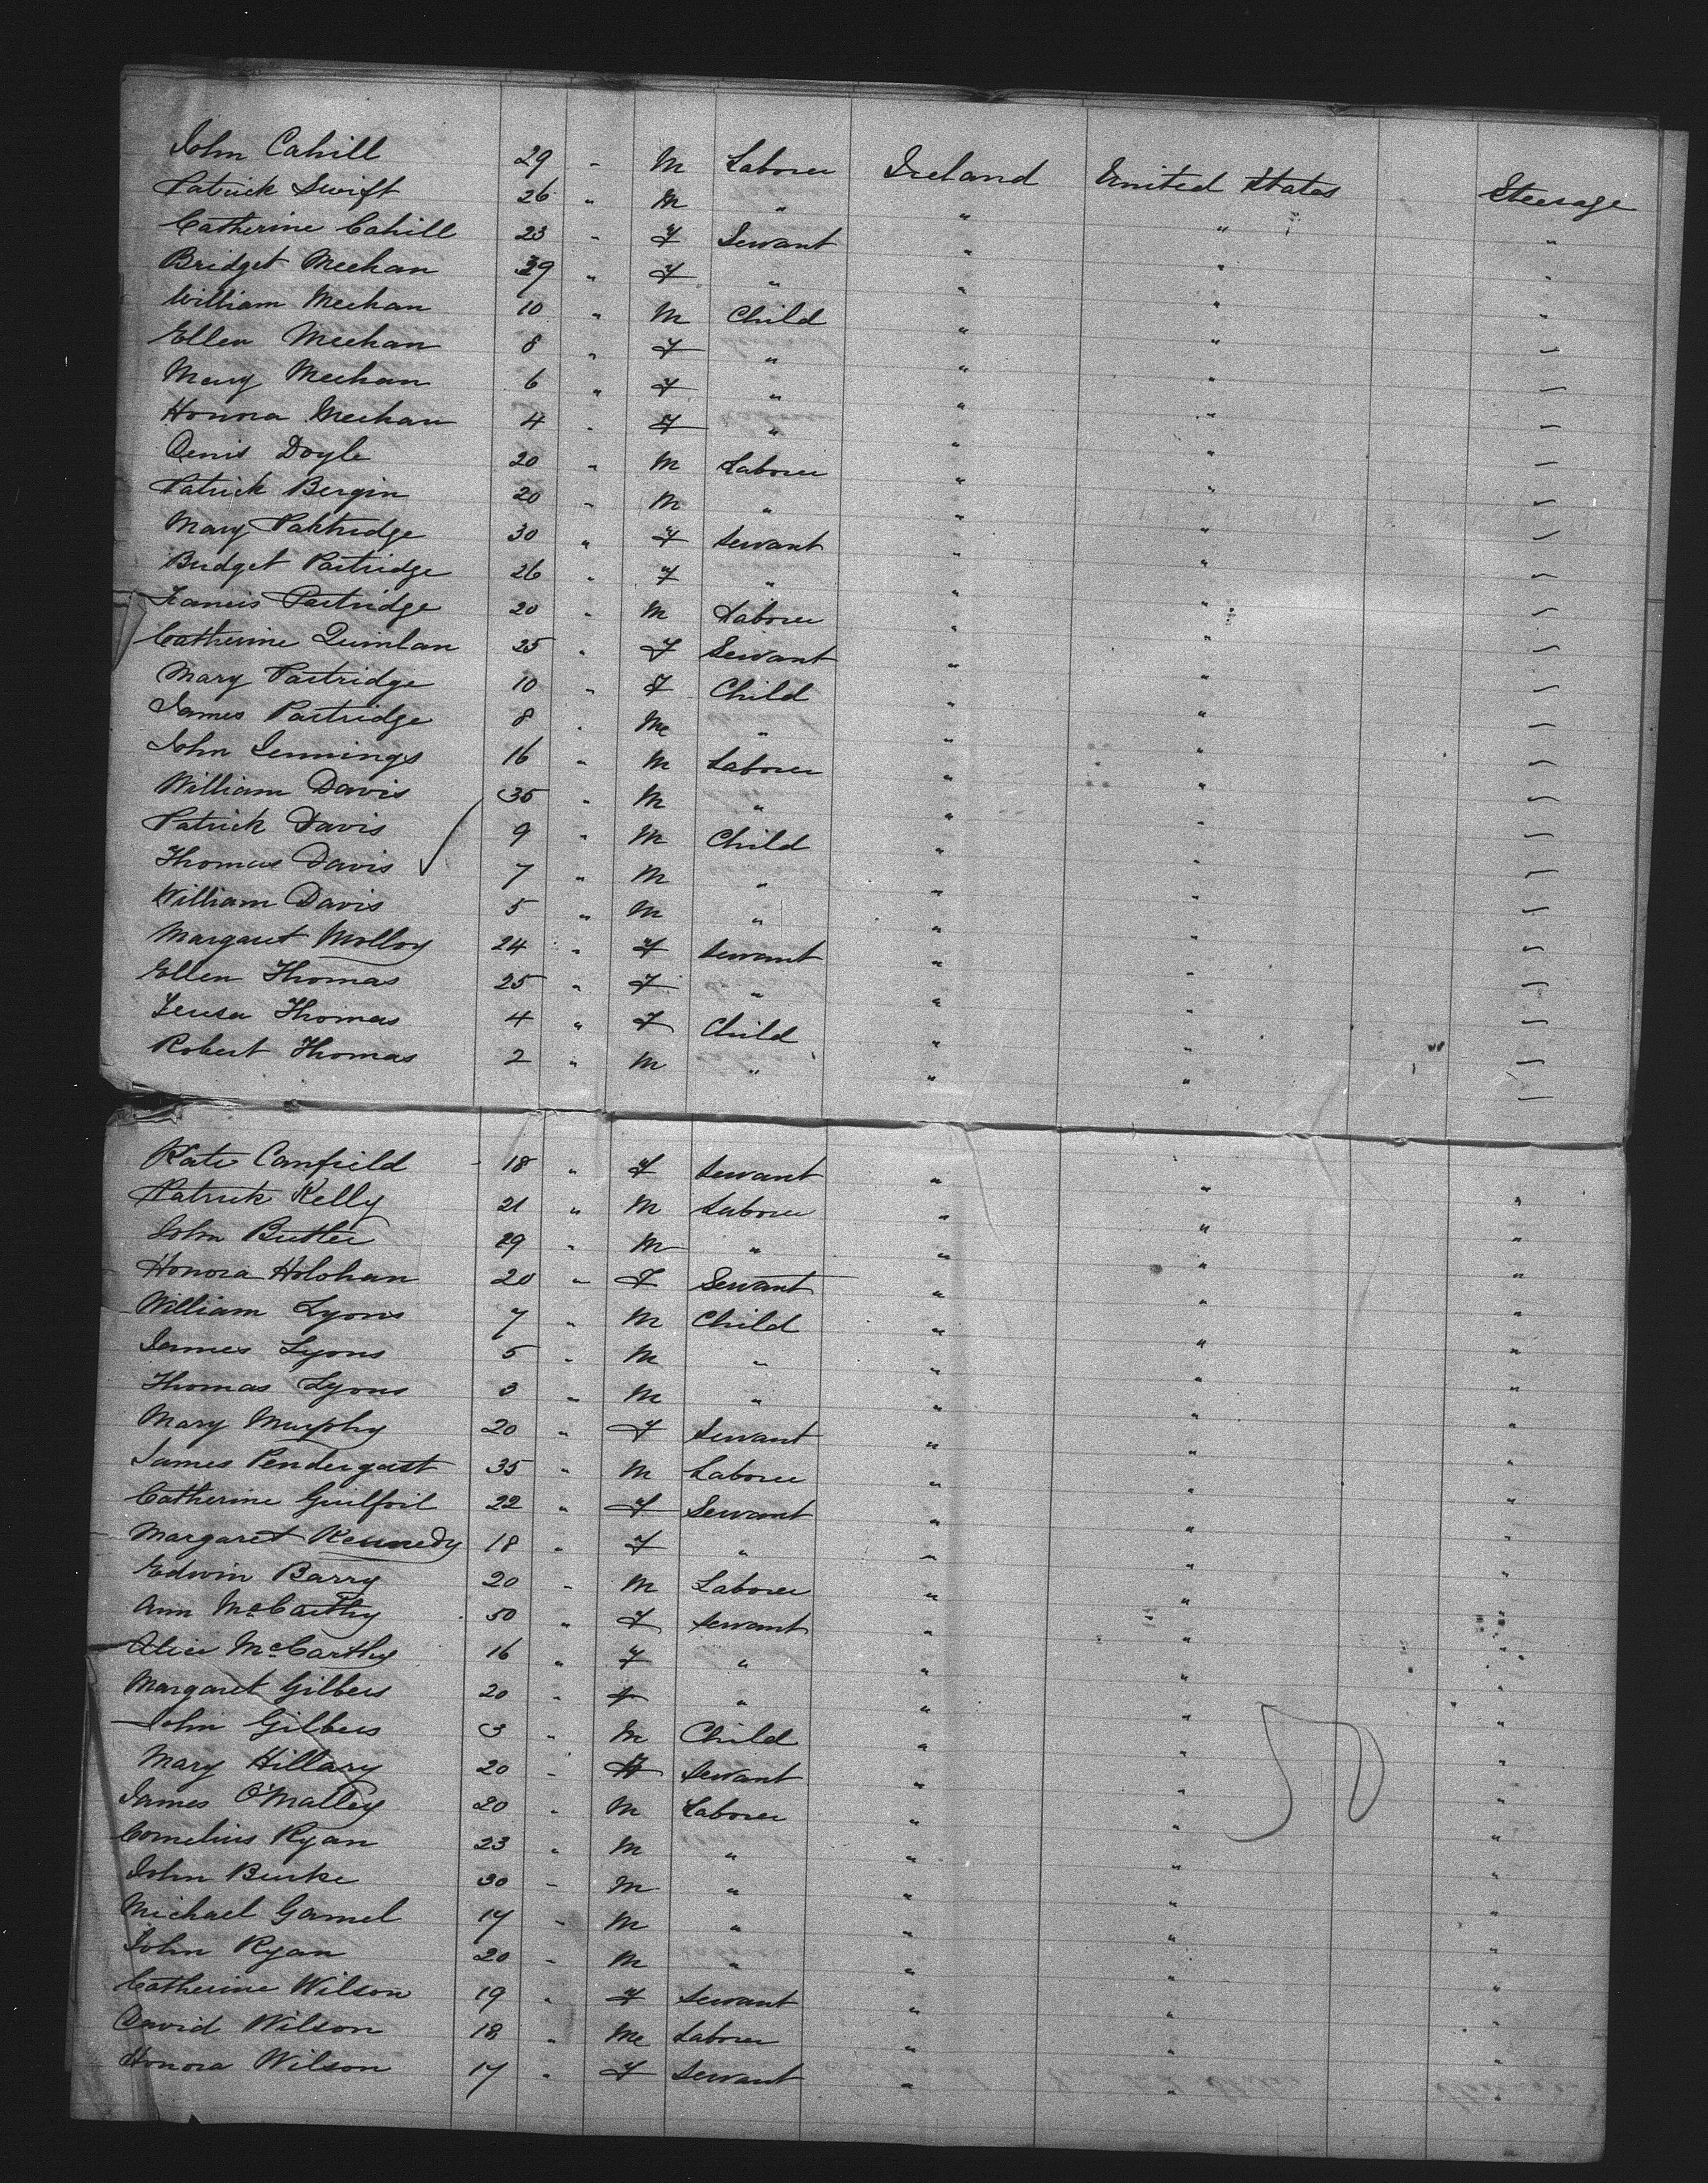 John Cahill 29 " M Laborer Ireland United States Steerage
Patrick Swift 26 " M " " " "
Catherine Cahill 23 " F Servant " " "
Bridget Meehan 39 " F " " " "
William Meehan 10 " M Child " " "
Ellen Meehan 8 " F " " " "
Mary Meehan 6 " F " " " "
Honora Meehan 4 " F " " " "
Denis Doyle 20 " M Laborer " " "
Patrick Bergin 20 " M " " " "
Mary Partridge 30 " F Servant " " "
Bridget Partridge 26 " F " " " "
Francis Partridge 20 " M Laborer " " "
Catherine Quinlan 25 " F Servant " " "
Mary Partridge 10 " F Child " " "
James Partridge 8 " M " " " "
John Jennings 16 " M Laborer " " "
William Davis 35 " M " " " "
Patrick Davis 9 " M Child " " "
Thomas Davis 7 " M " " " "
William Davis 5 " M " " " "
Margaret Molloy 24 " F Servant " " "
Ellen Thomas 25 " F " " " "
Teresa Thomas 4 " F Child " " "
Robert Thomas 2 " M " " " "
Kate Canfield 18 " F Servant " " "
Patrick Kelly 21 " M Laborer " " "
John Butler 29 " M " " " "
Honora Holohan 20 " F Servant " " "
William Lyons 7 " M Child " " "
James Lyons 5 " M " " " "
Thomas Lyons 3 " M " " " "
Mary Murphy 20 " F Servant " " "
James Pendergast 35 " M Laborer " " "
Catherine Guilfoil 22 " F Servant " " "
Margaret Kennedy 18 " F " " " "
Edwin Barry 20 " M Laborer " " "
Ann McCarthy 50 " F Servant " " "
Alice McCarthy 16 " F " " " "
Margaret Gilbers 20 " F " " " "
John Gilbers 3 " M Child " " "
Mary Hillary 20 " F Servant " " "
James O'Malley 20 " M Laborer " " "
Cornelius Ryan 23 " M " " " "
John Burke 30 " M " " " "
Michael Gamel 17 " M " " " "
John Ryan 20 " M " " " "
Catherine Wilson 19 " F Servant " " "
David Wilson 18 " M Laborer " " "
Honora Wilson 17 " F Servant " " "
50